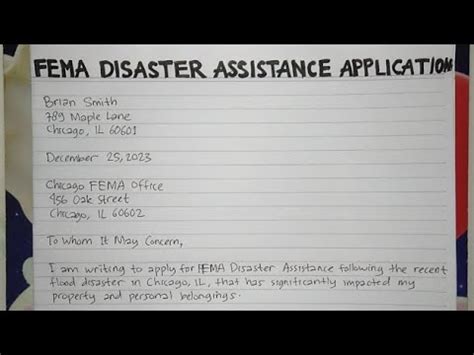 FEMA DISASTER ASSISTANCE APPLICATION
Brian Smith
789 Maple Lane
Chicago, IL 60601
December 25, 2023
Chicago FEMA Office
456 Oak Street
Chicago, IL 60602
To Whom It May Concern,
I am writing to apply for FEMA Disaster Assistance following the recent
flood disaster in Chicago, IL, that has significantly impacted my
property and personal belongings.